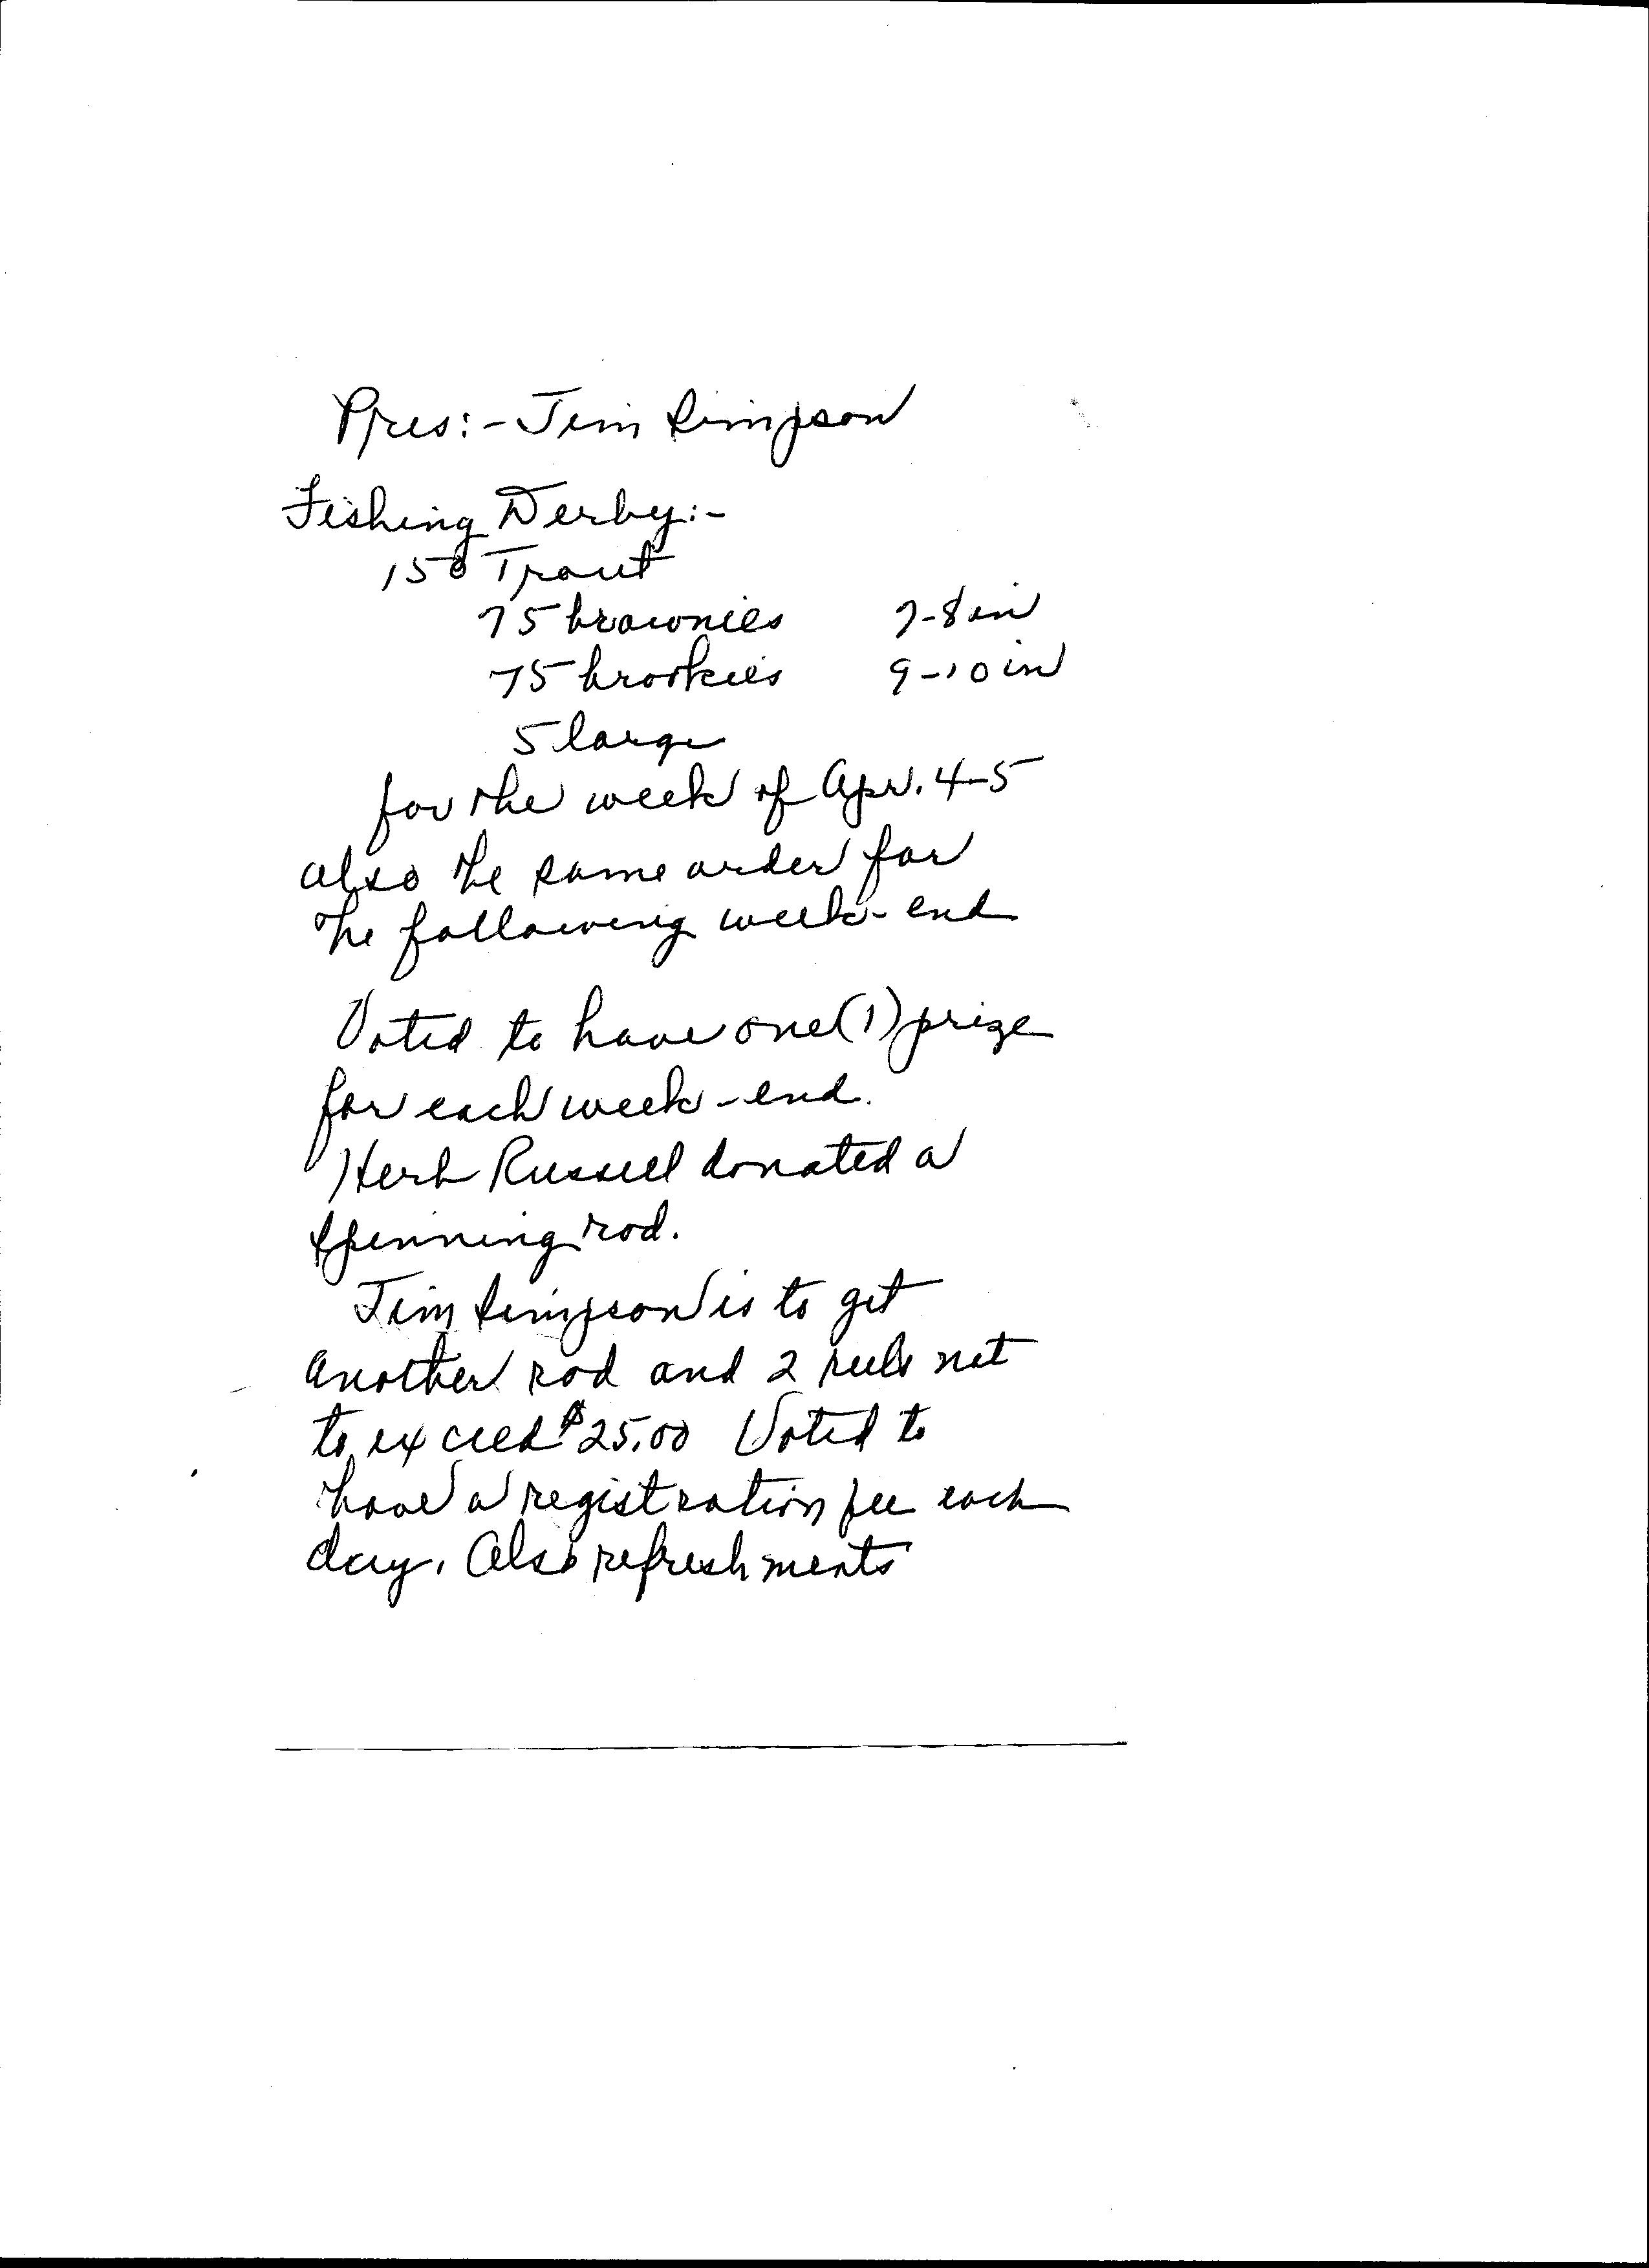 Pres:- Jim Simpson
Fishing Derby:-
150 Trout
75 brownies 7-8 in
75 brookies 9-10 in
5 large
for the week of Apr. 4-5
also the same order for
the following week-end
Voted to have one (1) prize
for each week-end.
Herb Russell donated a
spinning rod.
Jim Simpson is to get
another rod and 2 reels not
to exceed $25.00 Voted to
have a registration fee each
day. Also refreshments